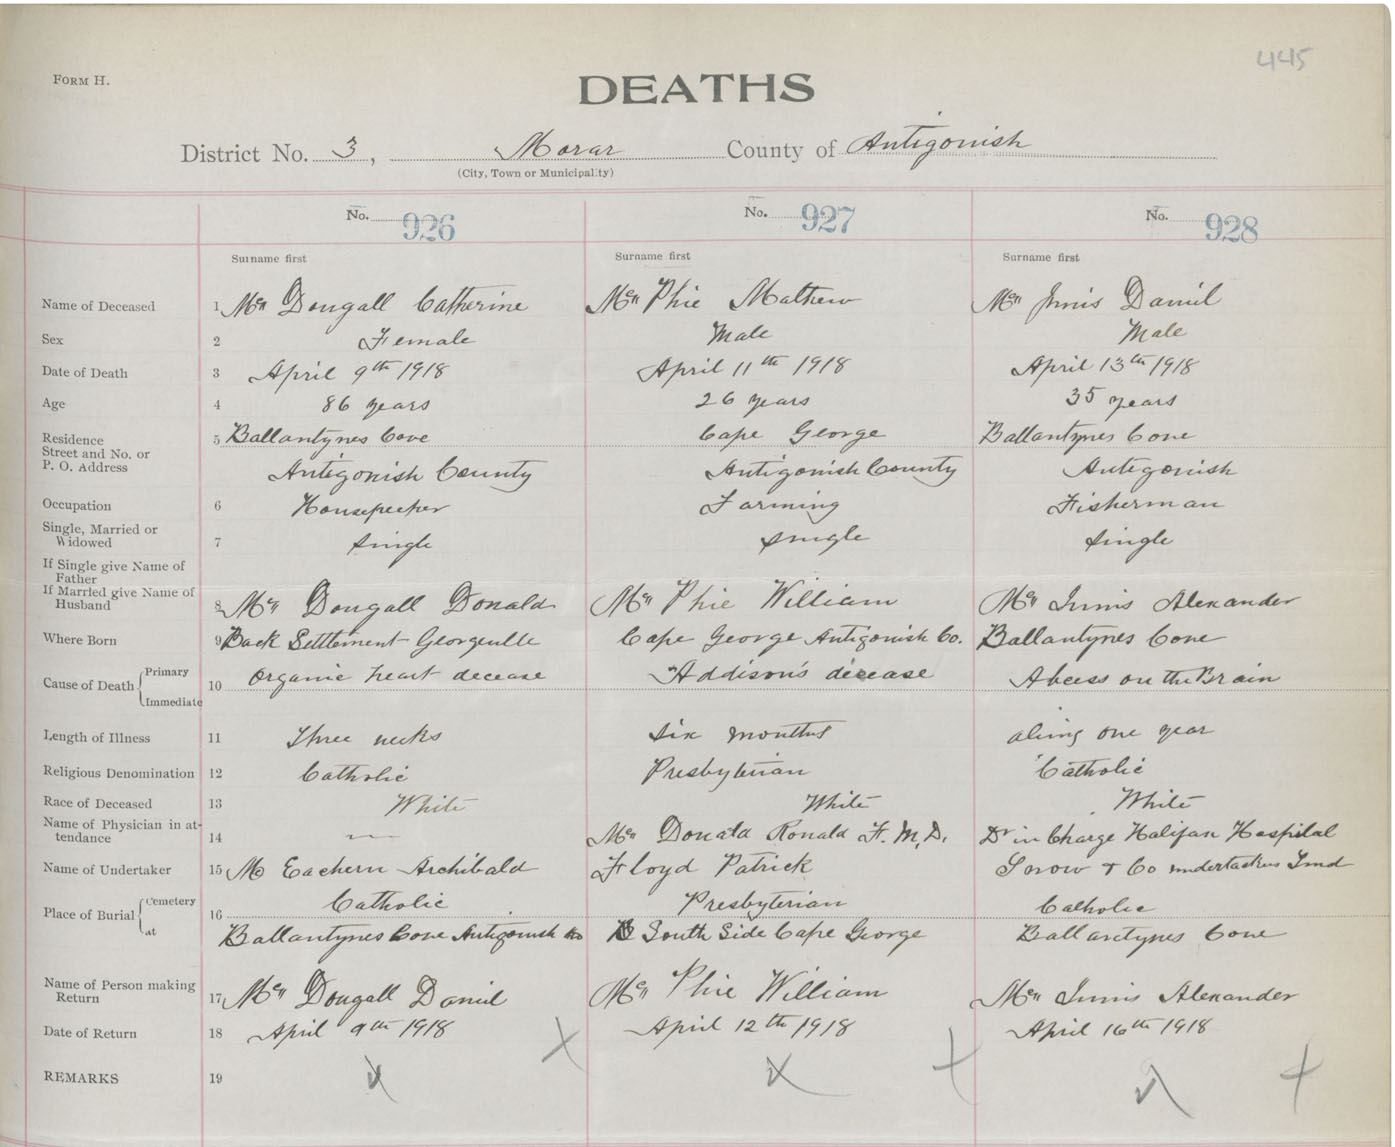 445
FORM H.
DEATHS
District No. 3, Morar County of Antigonish
(City, Town or Municipality)
No. 926 No. 927 No. 928
Surname first Surname first Surname first
Name of Deceased 1 Mc Dougall Catherine Mc Phie Mathew Mc Innis Daniel
Sex 2 Female Male Male
Date of Death 3 April 9th 1918 April 11th 1918 April 13th 1918
Age 4 86 years 26 years 35 years
Residence 5 Ballantynes Cove Cape George Ballantynes Cove
Street and No. or
P. O. Address Antigonish County Antigonish County Antigonish
Occupation 6 Housepeeper Farming Fisherman
Single, Married or
Widowed 7 single single single
If Single give Name of
Father
If Married give Name of
Husband 8 Mc Dougall Donald Mc Phie William Mc Innis Alexander
Where Born 9 Back Settlement Georgeville Cape George Antigonish Co. Ballantynes Cove
Cause of Death Primary 10 Organic heart decease Addison's disease Abcess on the Brain
Immediate
Length of Illness 11 Three weeks six months along one year
Religious Denomination 12 Catholic Presbyterian Catholic
Race of Deceased 13 White White White
Name of Physician in at-
tendance 14 — Mc Donald Ronald F. M, D. Dr in Charge Halifax Hospital
Name of Undertaker 15 Mc Eachern Archibald Floyd Patrick Snow & Co undertakers Lmd
Place of Burial Cemetery 16 Catholic Presbyterian Catholic
at Ballantynes Cove Antigonish Co South Side Cape George Ballantynes Cove
Name of Person making
Return 17 Mc Dougall Daniel Mc Phie William Mc Innis Alexander
Date of Return 18 April 9th 1918 April 12th 1918 April 16th 1918
REMARKS 19